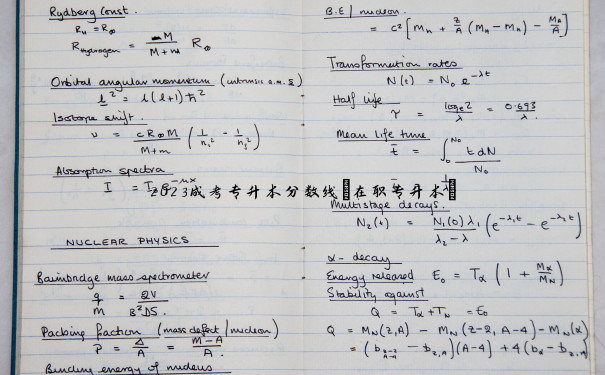 Rydberg Const.
R_H = R_∞
R_Hydrogen = M / (M + m) R_∞
Orbital angular momentum (intrinsic a.m. s)
l² = l(l+1)ħ²
Isotope shift.
ν = cR_∞M / (M+m) (1/n₁² - 1/n₂²)
Absorption spectra
I = I₀ e^(-μx)
NUCLEAR PHYSICS
Bainbridge mass spectrometer
q/m = 2V / B²DS.
Packing fraction (mass defect / nucleon)
P = Δ/A = (M-A)/A.
Binding energy of nucleus
2023成考专升本分数线 在职专升本
B.E / nucleon.
= c² [M_n + Z/A (M_H - M_n) - M_A/A]
Transformation rates
N(t) = N₀ e^(-λt)
Half life
τ = log_e 2 / λ = 0.693 / λ.
Mean life time
t̄ = ∫₀^N₀ t dN / N₀
Multistage decays.
N₂(t) = N₁(0)λ₁ / (λ₂ - λ) (e^(-λ₁t) - e^(-λ₂t))
α - decay
Energy released E₀ = T_α (1 + M_α/M_N)
Stability against
Q = T_α + T_N = E₀
Q = M_N(Z,A) - M_N(Z-2, A-4) - M_N(α)